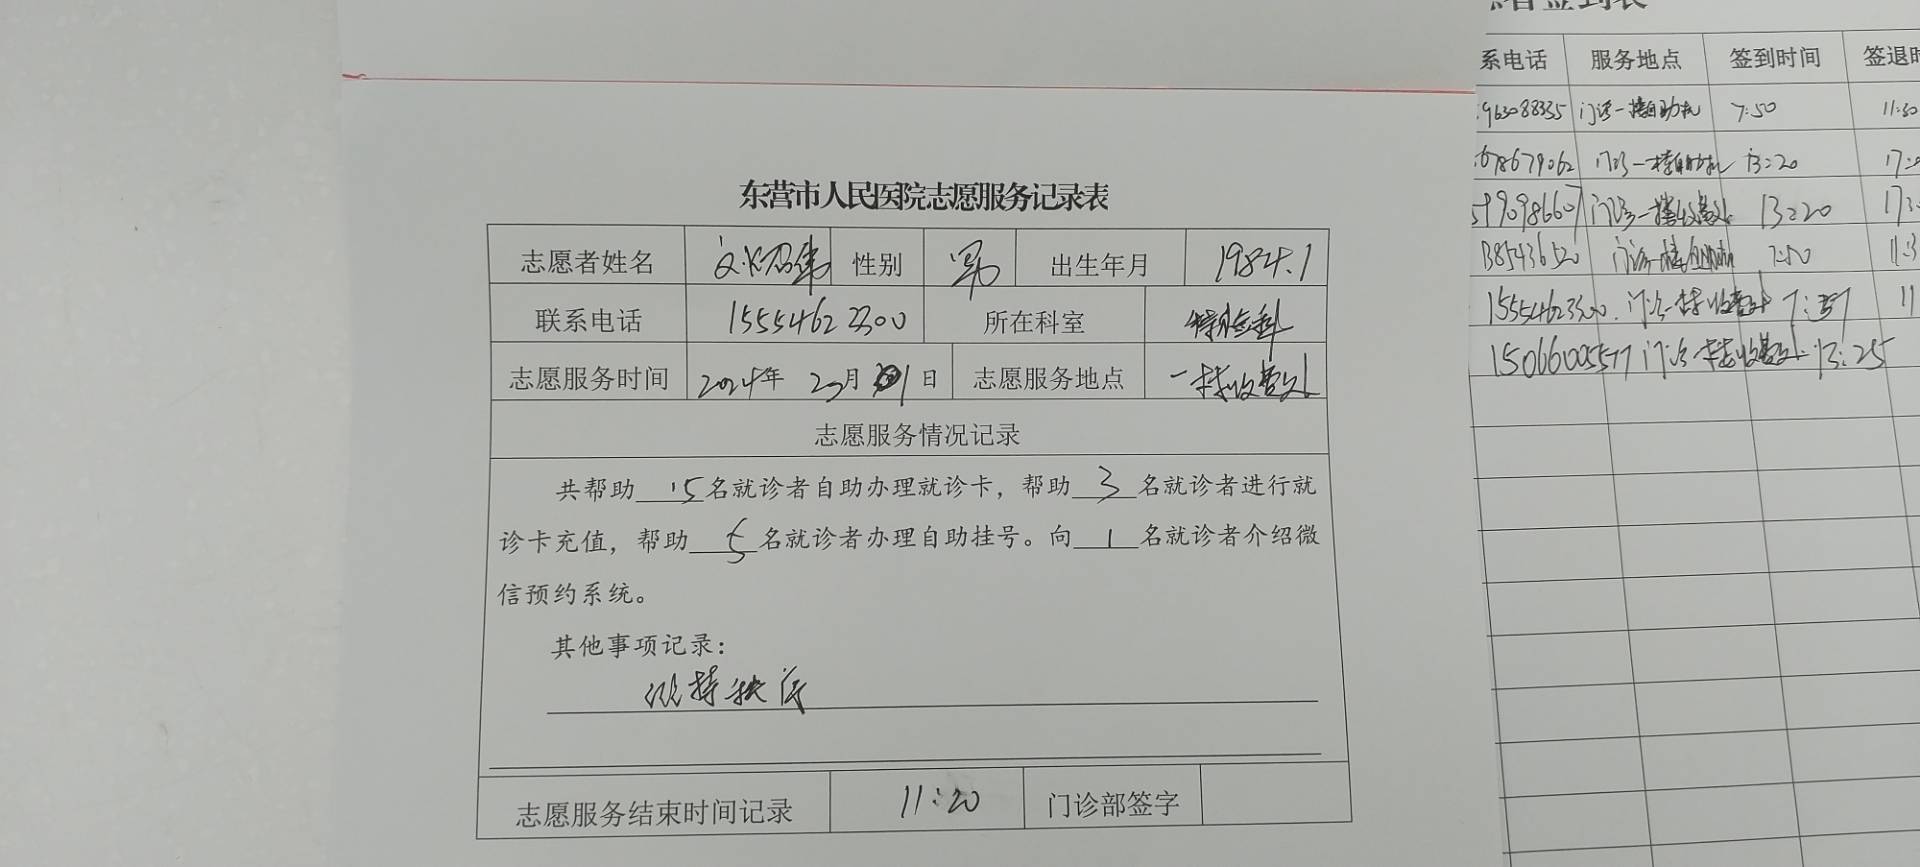 东营市人民医院志愿服务记录表
志愿者姓名 性别 男 出生年月 1984.1
联系电话 15554623300 所在科室 特检科
志愿服务时间 2024年 月 日 志愿服务地点 一楼收费处
志愿服务情况记录
共帮助15名就诊者自助办理就诊卡，帮助3名就诊者进行就
诊卡充值，帮助5名就诊者办理自助挂号。向1名就诊者介绍微
信预约系统。
其他事项记录：
维持秩序
志愿服务结束时间记录 11:20 门诊部签字
系电话 服务地点 签到时间 签退时
963088335 门诊一楼自助机 7:50 11:30
678679062 门诊一楼自助机 13:20 17:
59909866 门诊一楼收费处 13:20 17:30
1385436520 门诊一楼自助机 7:50 11:3
15554623300 门诊一楼收费处 7:57 11
15066005577 门诊一楼收费处 13:25